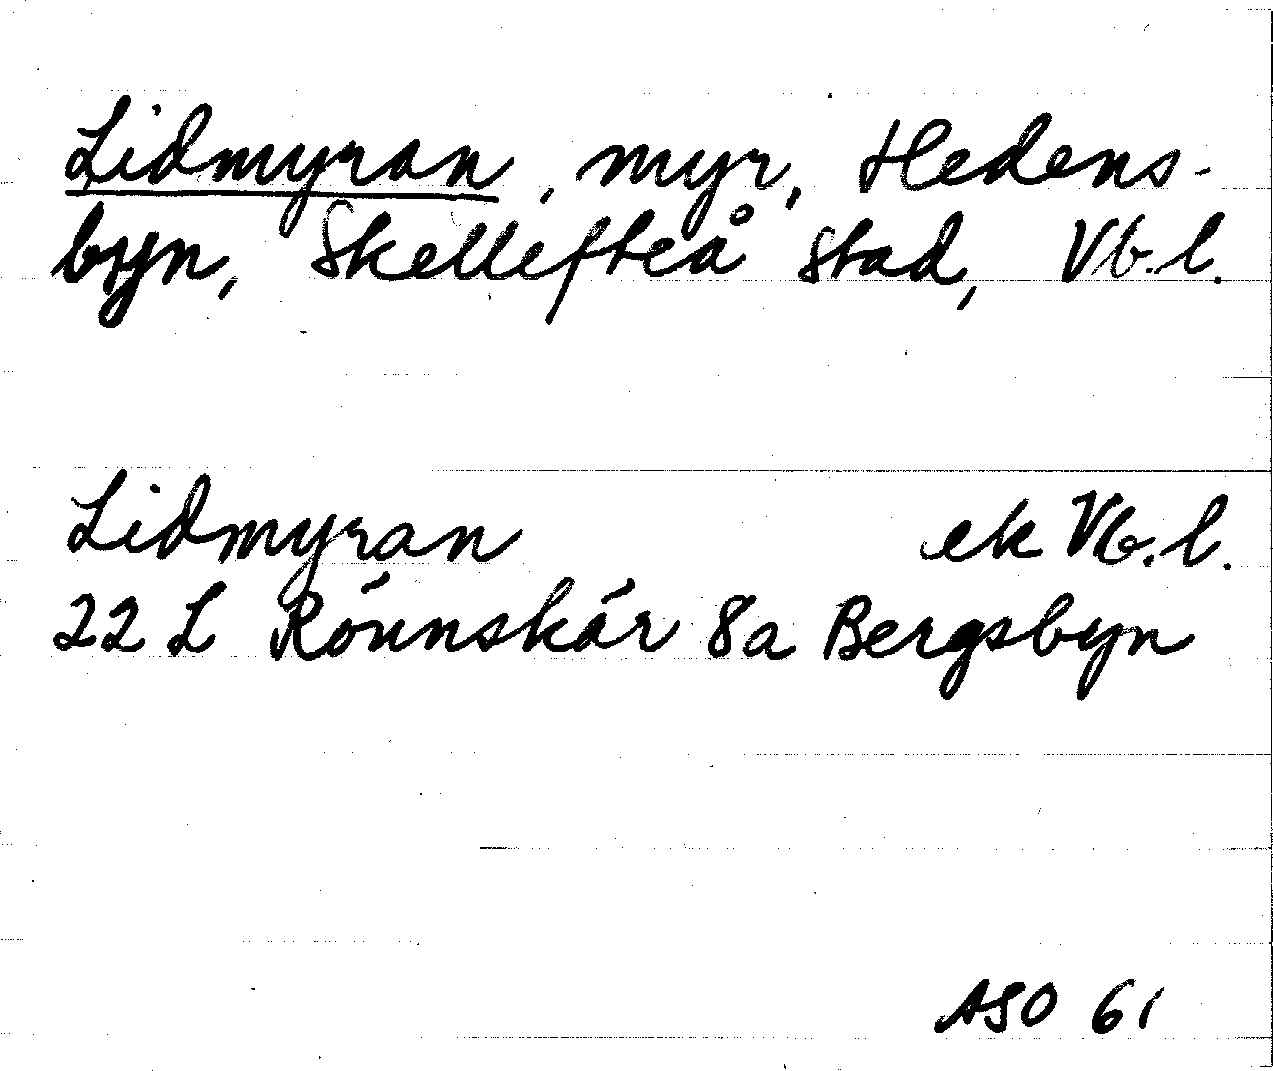 Lidmyran, myr, Hedens-
byn, Skellefteå stad, Vb. l.
Lidmyran ek Vb. l.
22 L Rönnskär 8a Bergsbyn
ASO 61